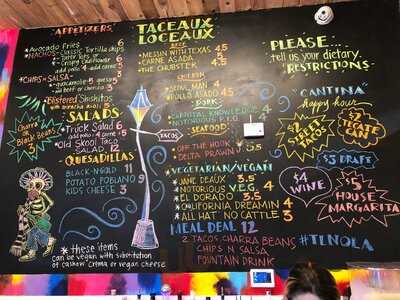 APPETIZERS
*Avocado Fries 6
*NACHOS- Classic Tortilla chips
Crispy Cauliflower
*CHIPS & SALSA
+guacamole 5 +queso 5
Blistered Shishitos
SALADS
*Truck Salad 6
*Old Skool Taco
SALAD 12
QUESADILLAS
BLACK-N-GOLD 11
POTATO POBLANO 9
KIDS CHEESE 3
Try
CHARRA
Black Beans
3
*these items
can be vegan with substitution
of cashew crema or vegan cheese
TACEAUX
OCEAUX
BEEF
MESSIN WITH TEXAS 4.5
CARNE ASADA 4
THE CHUBSTEK 4
CHICKEN
SEOUL MAN 4
ROLLO ASADO 4.5
PORK
CAPITAL KNOWLEDGE 4
NOTORIOUS P.I.G. 4
SEAFOOD
OFF THE HOOK 4
DELTA PRAWN 5
VEGETARIAN/VEGAN
*JANE DEAUX 3.5
*NOTORIOUS V.E.G. 4
*EL DORADO 3.5
*CALIFORNIA DREAMIN 4
*ALL HAT NO CATTLE 3
MEAL DEAL 12
2 TACOS, CHARRA BEANS
CHIPS N SALSA,
FOUNTAIN DRINK
TACOS
PLEASE...
tell us your dietary
RESTRICTIONS
CANTINA
happy hour
$2
STREET
TACOS
$2
TECATE
CAN
$3 DRAFT
$4
WINE
$5
HOUSE
MARGARITA
#TLNOLA